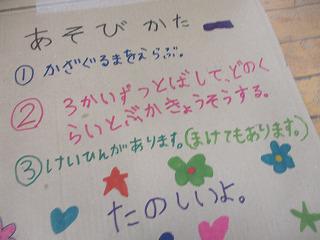 あそびかた
① かざぐるまをえらぶ。
② 3かいずつとばして、どのく
らいとぶかきょうそうする。
③ けいひんがあります。(まけてもあります。)
たのしいよ。